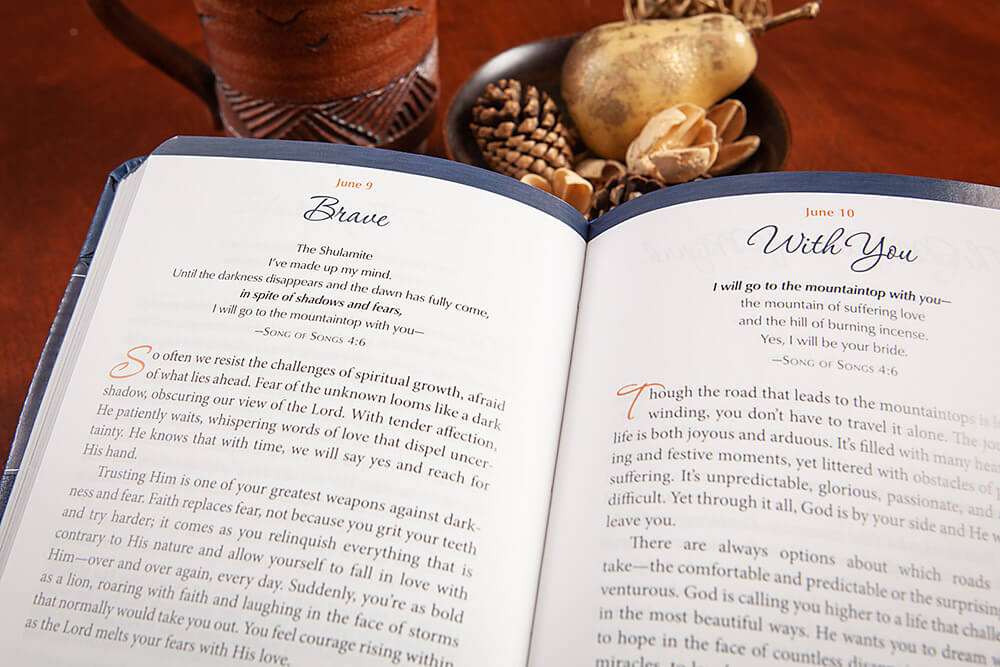 June 9
Brave
The Shulamite
I've made up my mind.
Until the darkness disappears and the dawn has fully come,
in spite of shadows and fears,
I will go to the mountaintop with you—
—Song of Songs 4:6
So often we resist the challenges of spiritual growth, afraid
of what lies ahead. Fear of the unknown looms like a dark
shadow, obscuring our view of the Lord. With tender affection,
He patiently waits, whispering words of love that dispel uncer-
tainty. He knows that with time, we will say yes and reach for
His hand.
Trusting Him is one of your greatest weapons against dark-
ness and fear. Faith replaces fear, not because you grit your teeth
and try harder; it comes as you relinquish everything that is
contrary to His nature and allow yourself to fall in love with
Him—over and over again, every day. Suddenly, you're as bold
as a lion, roaring with faith and laughing in the face of storms
that normally would take you out. You feel courage rising within
as the Lord melts your fears with His love.
June 10
With You
I will go to the mountaintop with you—
the mountain of suffering love
and the hill of burning incense.
Yes, I will be your bride.
—Song of Songs 4:6
Though the road that leads to the mountaintops is
winding, you don't have to travel it alone. The
life is both joyous and arduous. It's filled with many
ing and festive moments, yet littered with obstacles of
suffering. It's unpredictable, glorious, passionate, and
difficult. Yet through it all, God is by your side and He
leave you.
There are always options about which roads
take—the comfortable and predictable or the surprising
venturous. God is calling you higher to a life that
in the most beautiful ways. He wants you to dream
to hope in the face of countless
miracles, to